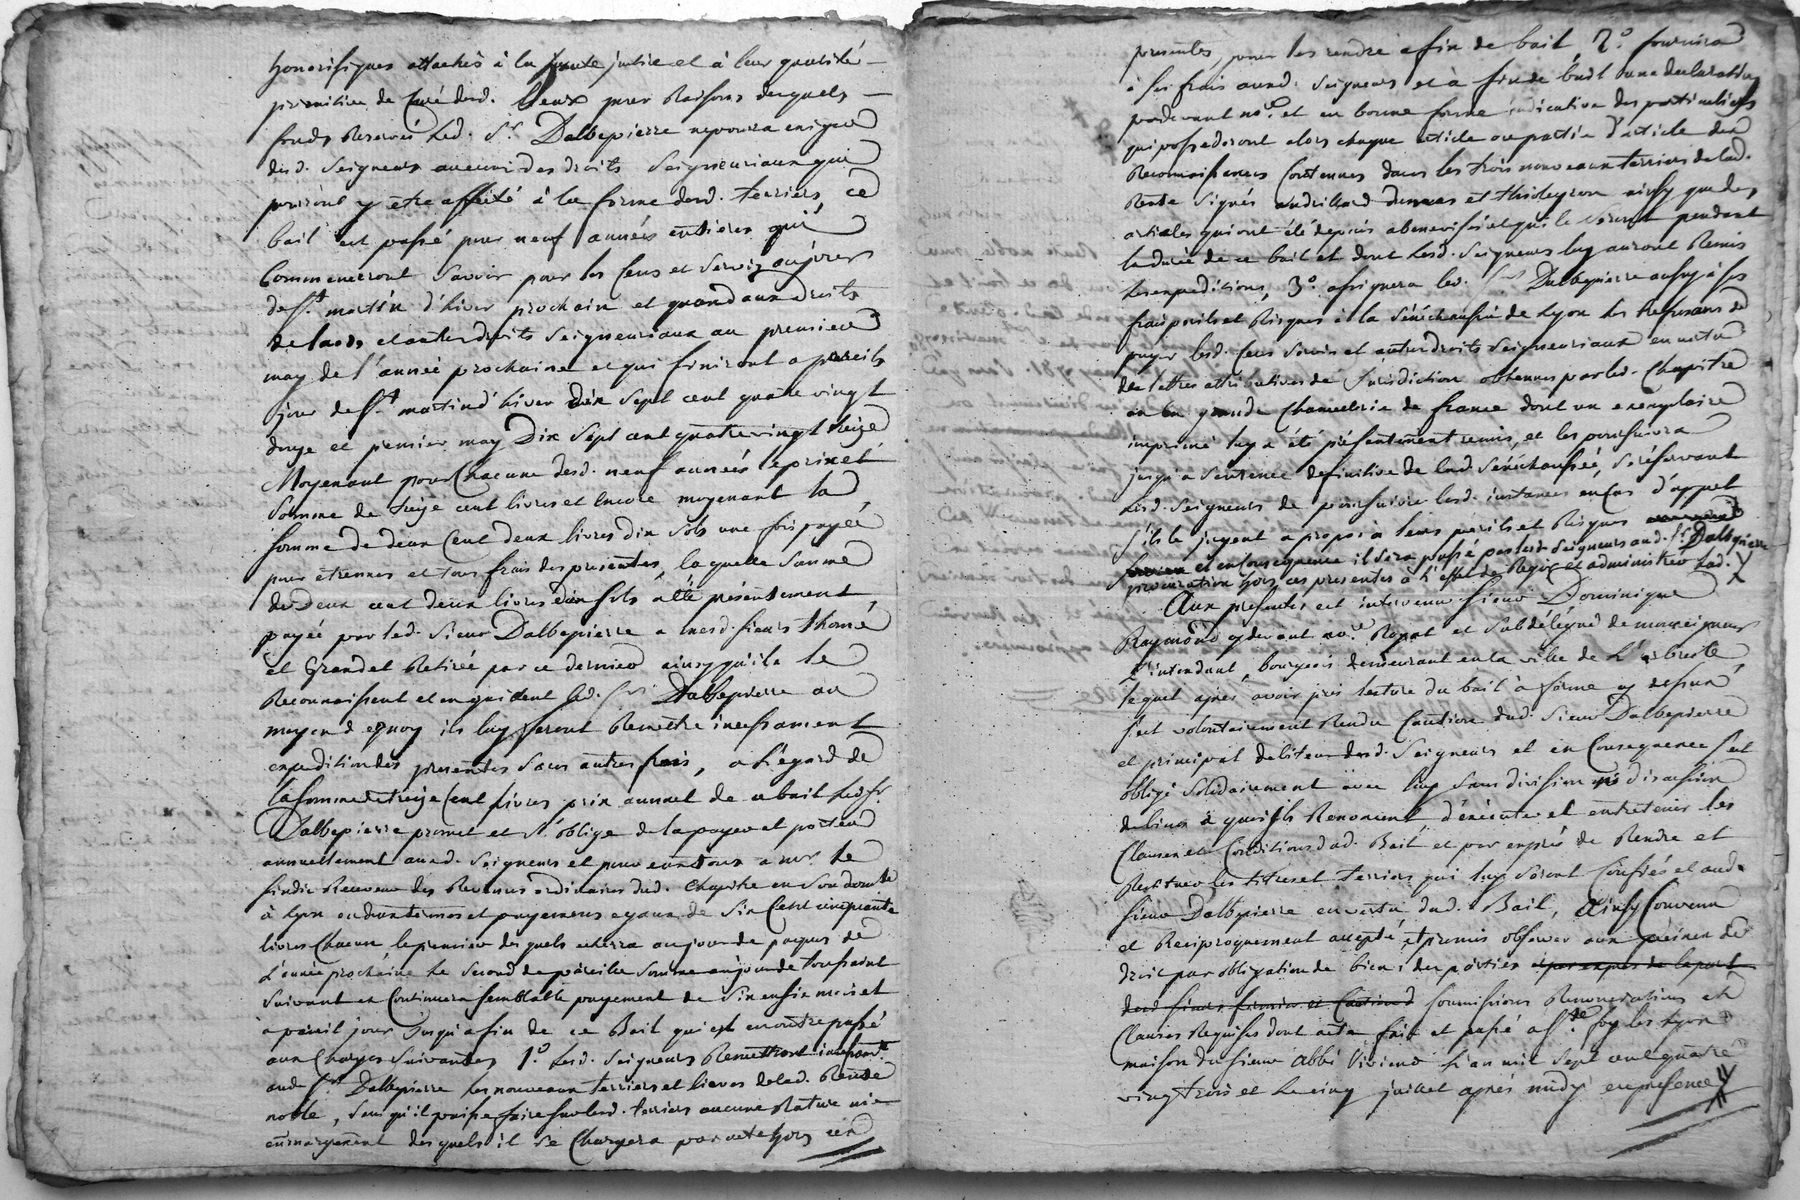 honorifiques attachés à la haute justice et à leur qualité
primitive de Curé desd. lieux pour Raisons desquels
fonds Reservés led. Sr. Dalbepierre ne poura exiger
desd. Seigneurs aucuns des droits Seigneuriaux qui
pourront y être affecté à la forme desd. terriers, ce
bail est passé pour neuf années entieres qui
Commenceront Savoir pour les Cens et Servis au jour
de St. martin d'hiver prochain et quand aux droits
de laods et autre droits Seigneuriaux au premier
may de l'année prochaine et qui finiront a pareils
jour de St. martin d'hiver dix Sept cent quatre vingt
douze et premier may Dix Sept cent quatre vingt treize
Moyenant pour Chacune desd. neuf années le prix et
Somme de treize cent livres et encore moyenant la
Somme de deux Cent deux livres dix Sols une fois payée
pour étrennes et tous frais des presentes, la quelle Somme
de deux cent deux livres dix Sols a été présentement
payée par led. Sieur Dalbepierre a mesd. sieurs thomé
et Grandet Retirée par ce dernier ainsy qu'ils le
Reconnaissent et en quittent led. Sr. Dalbepierre au
moyen d equoy ils luy feront Remettre incessament
expedition des presentes Sans autres frais, a L'égard de
la Somme de treize Cent livres prix annuel de ce bail led. Sr.
Dalbepierre promet et S'oblige de la payer et porter
annuellement auxd. Seigneurs et pour eux tous a mr. le
Sindic Receveur des Revenus ordinaires dud. Chapitre en Son domicile
à Lyon en deux termes et payemens egaux de Six Cent cinquante
livres Chacun le premier des quels echerra au jour de paques de
L'année prochaine le Second de pareille Somme au jour de toussaint
Suivant et Continuera Semblable payement de Six en Six mois et
a pareil jour Jusqu'a fin de ce Bail qui est en outre passé
aux Charges Suivantes 1° Lesd. Seigneurs Remettront incessamt.
aud. Sr. Dalbepierre les nouveaux terriers et lieves de lad. Rente
noble, Sans qu'il puisse faire Sur lesd. terriers aucune Rature ni
emmargement desquels il Se Chargera par acte hors ces
presentes, pour les rendre a fin de bail, 2° fournira
à Ses frais auxd. Seigneurs et à fin de bail une declaration
pardevant nore. et en bonne forme indicative des particuliers
qui possederont alors chaque article ou partie d'article des
Reconnaissances Contenues dans les trois nouveaux terriers de lad.
Rente Signés et ainsy que des
articles qui ont été depuis abenevisés et qui le Seront pendant
la durée de ce bail et dont lesd. Seigneurs luy auront Remis
les expeditions, 3° assignera led. Sr. Dalbepierre aussy à Ses
frais perils et Risques à la Sénéchaussée de Lyon les Refusans de
payer lesd. Cens Servis et autres droits Seigneuriaux en vertu
de lettres attributives de Jurisdiction obtenues par led. Chapitre
en la grande Chancelerie de france dont un exemplaire
imprimé luy a été présentement remis, et les poursuivra
jusqu'a Sentence definitive de lad. Sénéchaussée, Se réservant
lesd. Seigneurs de poursuivre lesd. instances en Cas d'appel
S'ils le jugent a propos à leurs perils et Risques
et en Consequence il Sera passé par lesd. Seigneurs aud. Sr. Dalbepierre
procuration hors ces presentes à l'effet de Regir et administrer lad.
Aux présentes est intervenu Sieur Dominique
Raymond cy devant nore. Royal et Subdélégué de monseigneur
L'intendant, bourgeois demeurant en la ville de L'arbresle
lequel après avoir pris lecture du bail à ferme cy dessus,
S'est volontairement Rendu Caution dud. Sieur Dalbepierre
et principal debiteur desd. Seigneurs et en Consequence S'est
obligé Solidairement avec luy Sans division ni discussion
de biens à quoi ils Renoncent d'exécuter et entretenir les
Clauses et Conditions dud. Bail et par exprès de Rendre et
Restituer les titres et terriers qui luy Seront Confiés et aud.
Sieur Dalbepierre en vertu dud. Bail, Ainsy Convenu
et Reciproquement accepté, et promis observer aux peines de
droit par obligation de biens des parties et par exprès de la part
desd. Sieurs fermier et Caution Soumissions Renonciations et
Clauses Requises dont acte fait et passé a Ste. foy les Lyon
maison du Sieur abbé L'an mil Sept cent quatre
vingt trois et le cinq juillet après midy en presence